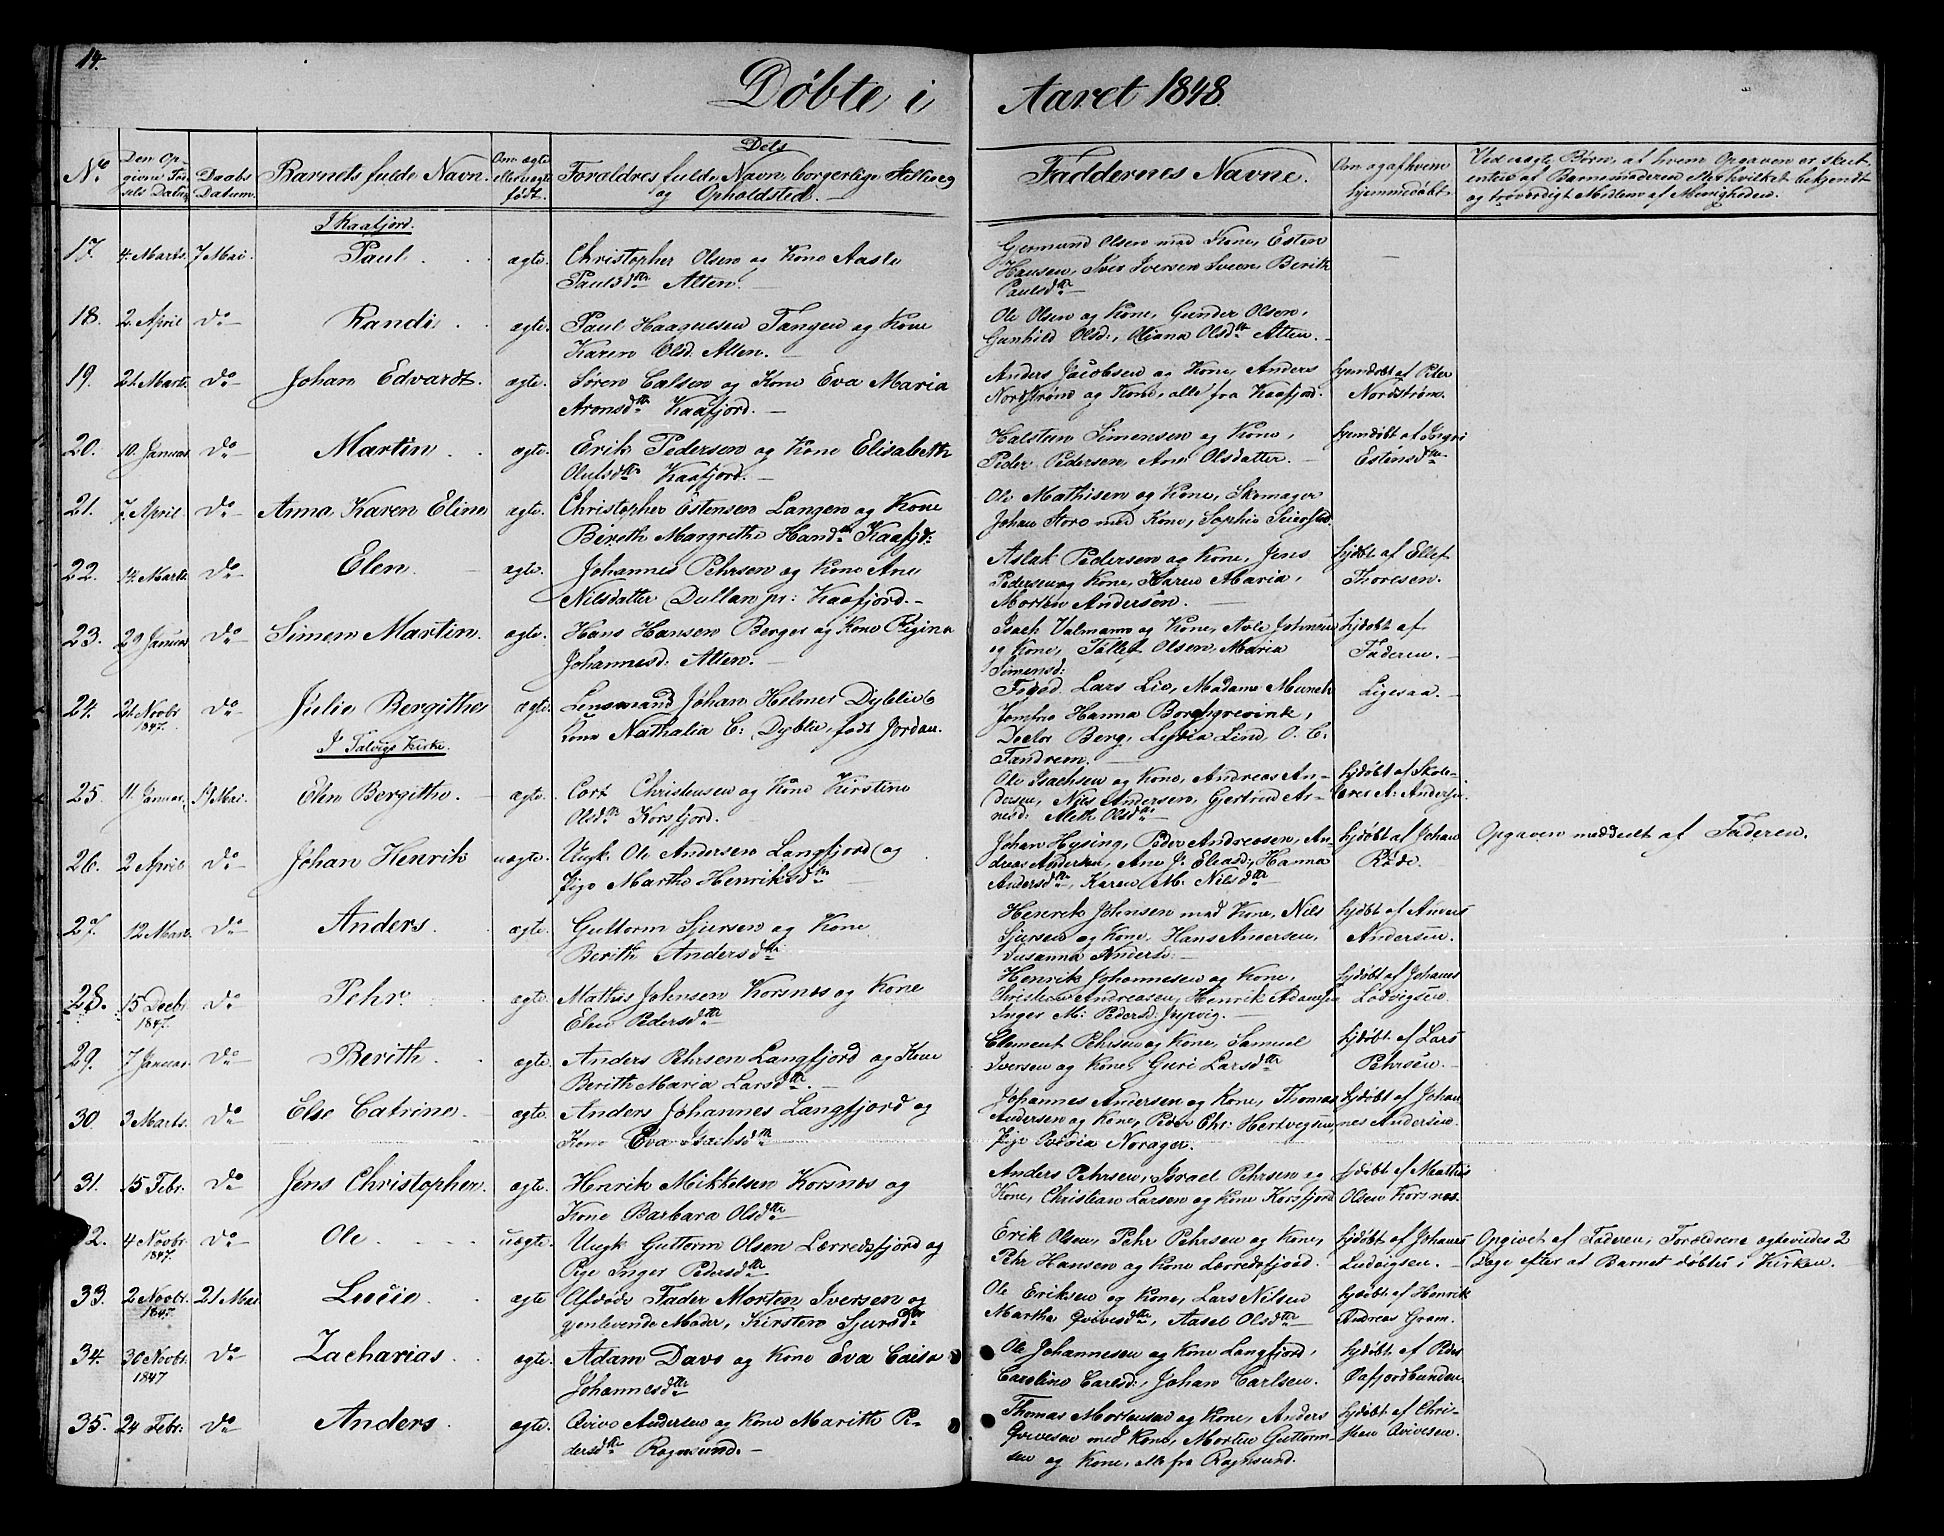 14.
Døbte i Aaret 1848.
No Den Opgivne Fødsels Datum Daabs Datum. Barnets fulde Navn. Om ægte eller uægte født. Forældres fulde Navn, borgerlige Stilling og Opholdsted. Faddernes Navne. Om og af hvem hjemmedøbt.
I Kaafjord.
17. 4 Marts. 7 Mai. Paul ægte. Christopher Olsen og Kone Aaste
Paulsdtr Alten.
Gjermund Olsen med Kone, Esten
Hansen, Iver Iversen Sveen, Berith
Paulsdtr
18. 2 April Do Randi ægte. Paul Haagensen Tangen og Kone
Karen Olsd. Alten.
Ole Olsen og Kone, Gunder Olsen,
Gunhild Olsd., Oliana Olsdtr Alten.
19. 21 Marts. Do Johan Edvardt. ægte. Søren Carlsen og Kone Eva Maria
Aronsdtr Kaafjord.
Anders Jacobsen og Kone, Anders
Nordstrøm og Kone, alle fra Kaafjord.
hjemdøbt af Peter
Nordstrøm.
20. 10 Januar. Do Martin ægte. Erik Pedersen og Kone Elisabeth
Olufsdtr Kaafjord.
Halsten Simensen og Kone,
Peder Pedersen, Ane Olsdatter.
hjemdøbt af Ingri
Estensdtr
21. 7 April Do Anna Karen Eline ægte. Christopher Estensen Langen og Kone
Bereth Margrethe Hansd. Kaafjd:
Ole Mathisen og Kone, Skomager
Johan Storo med Kone, Sophie Seiersted
22. 14 Marts Do Elen. ægte. Johannes Pehrsen og Kone Ane
Nilsdatter Kaafjord.
Aslak Pedersen og Kone, Jens
Pedersen og Kone, Karen Maria,
Morten Andersen.
hjdøbt af Ellef
Thoresen.
23. 29 Januar Do Simen Martin. ægte. Hans Hansen Berger og Kone Regina
Johannesd: Alten.
Isach Valmann og Kone, Johnsen
og Kone, Tollef Olsen, Maria
Simensd:
hjdøbt af
Faderen.
24. 21 Novbr 1847. Do Julie Bergithe ægte. Lensmand Johan Helmer Dyblie &
Kone Nathalia C: Dyblie født Jordan.
Lars Lie, Madame Munch
Jomfru Hanna Borchgrevink,
Doctor Berg, Lydia Lind, O. C.
Fandrem.
Ligesaa.
I Talvigs Kirke.
25. 11 Januar. 19 Mai. Elen Bergithe. ægte. Cort Christensen og Kone Kirstine
Olsdtr Korsfjord.
Ole Isachsen og Kone, Andreas An-
dersen, Nils Andersen, Gjertrud Ar-
nesd: Aleth Olsdtr
hjdøbt af Skole-
lærer A: Andersen.
26. 2 April Do Johan Henrik uægte. Ungk. Ole Andersen Langfjord og
Pige Marthe Henriksdtr
Johan Hysing, Peder Andreasen, An-
dreas Andersen, Ane J. Eleasd, Hanna
Andersdtr, Karen M: Nilsdtr
hjdøbt af Johan
Rode.
Opgaven meddeelt af Faderen.
27. 12 Mars. Do Anders. ægte. Guttorm Sjursen og Kone
Berith Andersdtr
Henrik Johnsen med Kone, Nils
Sjursen og Kone, Hans Andersen,
Susanna Andersd.
hjdøbt af Anders
Andersen.
28. 15 Decbr 1847. Do Pehr. ægte. Mathis Johnsen Korsnæs og Kone
Elen Pedersdtr
Henrik Johannesen og Kone,
Christian Andreasen, Henrik Adamsen
Inger M: Pedersd:
hjdøbt af Johanes
Lodvigsen.
29. 7 Januar. Do Berith. ægte. Anders Pehrsen Langfjord og Kone
Berith Maria Larsdtr.
Clement Pehrsen og Kone, Samuel
Iversen og Kone, Guri Larsdtr
hjdøbt af Lars
Pehrsen.
30. 3 Marts. Do Else Catrine. ægte. Anders Johannes Langfjord og
Kone Eva Isachsdtr
Johannes Andersen og Kone, Thomas
Andersen og Kone, Peder Chr: Hertvegsen,
Pige Norager.
hjdøbt af Johan-
nes Andersen.
31. 15 Febr. Do Jens Christopher. ægte. Henrik Mikkelsen Korsnæs og
Kone Barbara Olsdtr
Anders Pehrsen, Israel Pehrsen og
Kone, Christian Larsen og Kone Korsfjord
hjdøbt af Mathis
Olsen Korsnæs.
32. 4 Novbr 1847. Do Ole uægte. Ungk Guttorm Olsen Lerredsfjord og
Pige Inger Pedersdtr
Erik Olsen, Pehr Pehrsen og Kone,
Pehr Hansen og Kone Lerredsfjord.
hjdøbt af Johanes
Ludvigsen.
Opgivet af Faderen, Forældrene ægtevides 2
Dage efter at Barnet døbtes i Kirken.
33. 2 Novbr. 1847. 21 Mai. Lucie ægte Afdøde Fader Morten Iversen og
gjenlevende Moder, Kirsten Sjursdtr
Ole Eriksen og Kone, Lars Nilsen
Martha Qvivesdtr, Aasel Olsdtr
hjdøbt af Henrik
Andreas Gram.
34. 30 Novbr. 1847 Do Zacharias. ægte. Adam Davo og Kone Eva Caisa
Johannesdtr
Ole Johannesen og Kone Langfjord,
Caroline Carlsd:, Johan Carlsen.
hjdøbt af Peder
Oxfjordbunden
35. 24 Febr: Do Anders. ægte. Qvive Andersen og Kone Marith Pe-
dersdtr Rognsund.
Thomas Mortensen og Kone, Anders
Qvivesen med Kone, Morten Guttorm-
sen og Kone, alle fra Rognsund.
hjdøbt af Chri-
sten Qvivesen.